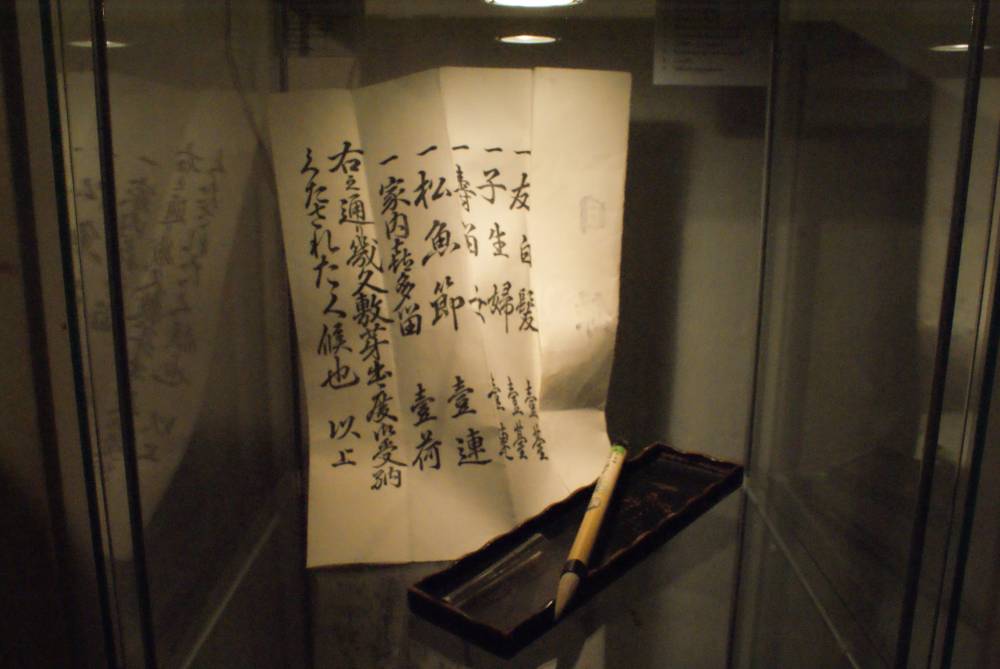 一 友白髪 壹臺
一 子生婦 壹臺
一
一 松魚節 壹連
一 家内喜多留 壹荷
右之通り幾久敷芽出度御受納
くたされたく候也 以上